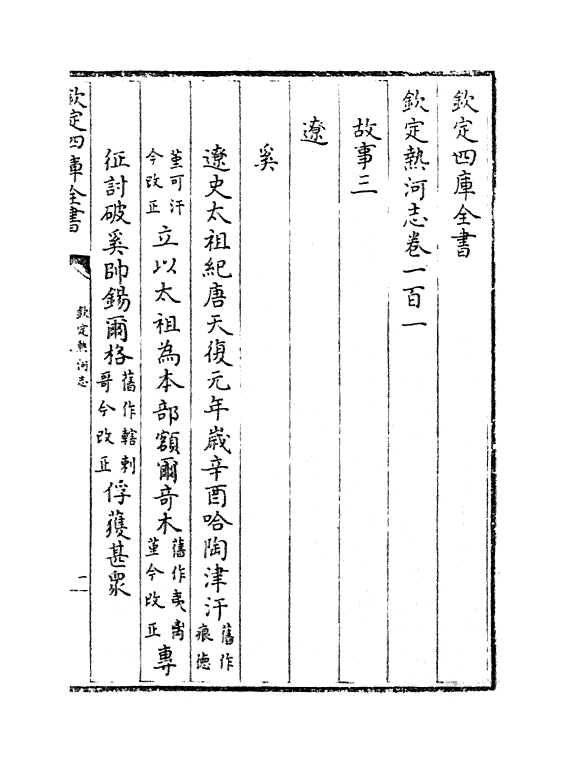 欽定四庫全書
欽定熱河志卷一百一
故事三
遼
奚
遼史太祖紀唐天復元年歲辛酉哈陶津汗舊作痕德
菫可汗今改正立以太祖為本部額爾竒木舊作夷离菫今改正專
征討破奚帥錫爾格舊作轄剌哥今改正俘獲甚眾
欽定四庫全書
欽定熱河志
一